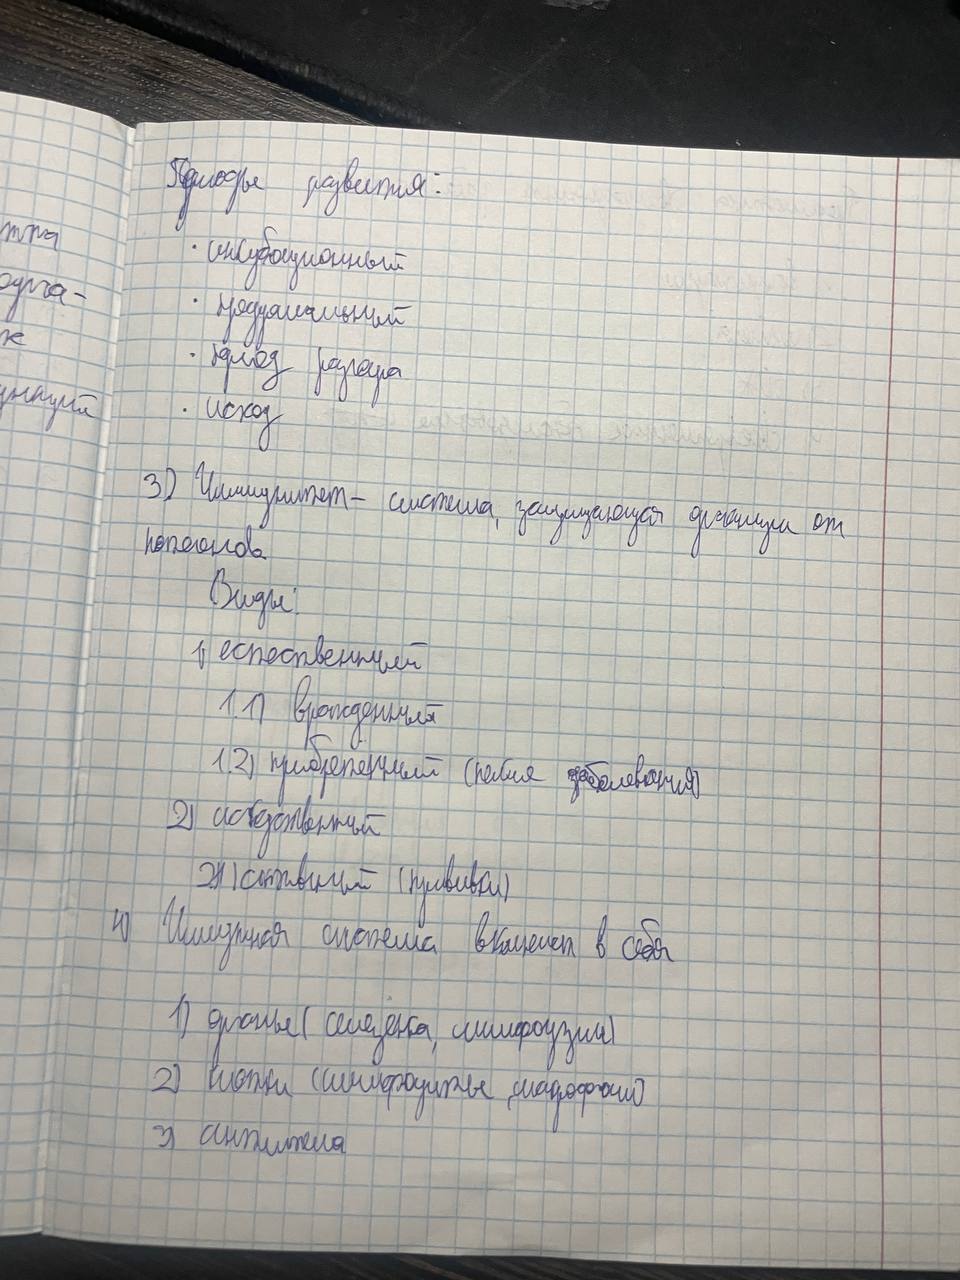 Периоды развития:
· инкубационный
· продромальный
· период разгара
· исход
3) Иммунитет – система, защищающая организм от
патогенов
Виды:
1) естественный
1.1) врожденный
1.2) приобретенный (после заболевания)
2) искусственный
2.1) активный (прививки)
4) Иммунная система включает в себя
1) органы (селезенка, лимфоузлы)
2) клетки (лимфоциты, макрофаги)
3) антитела